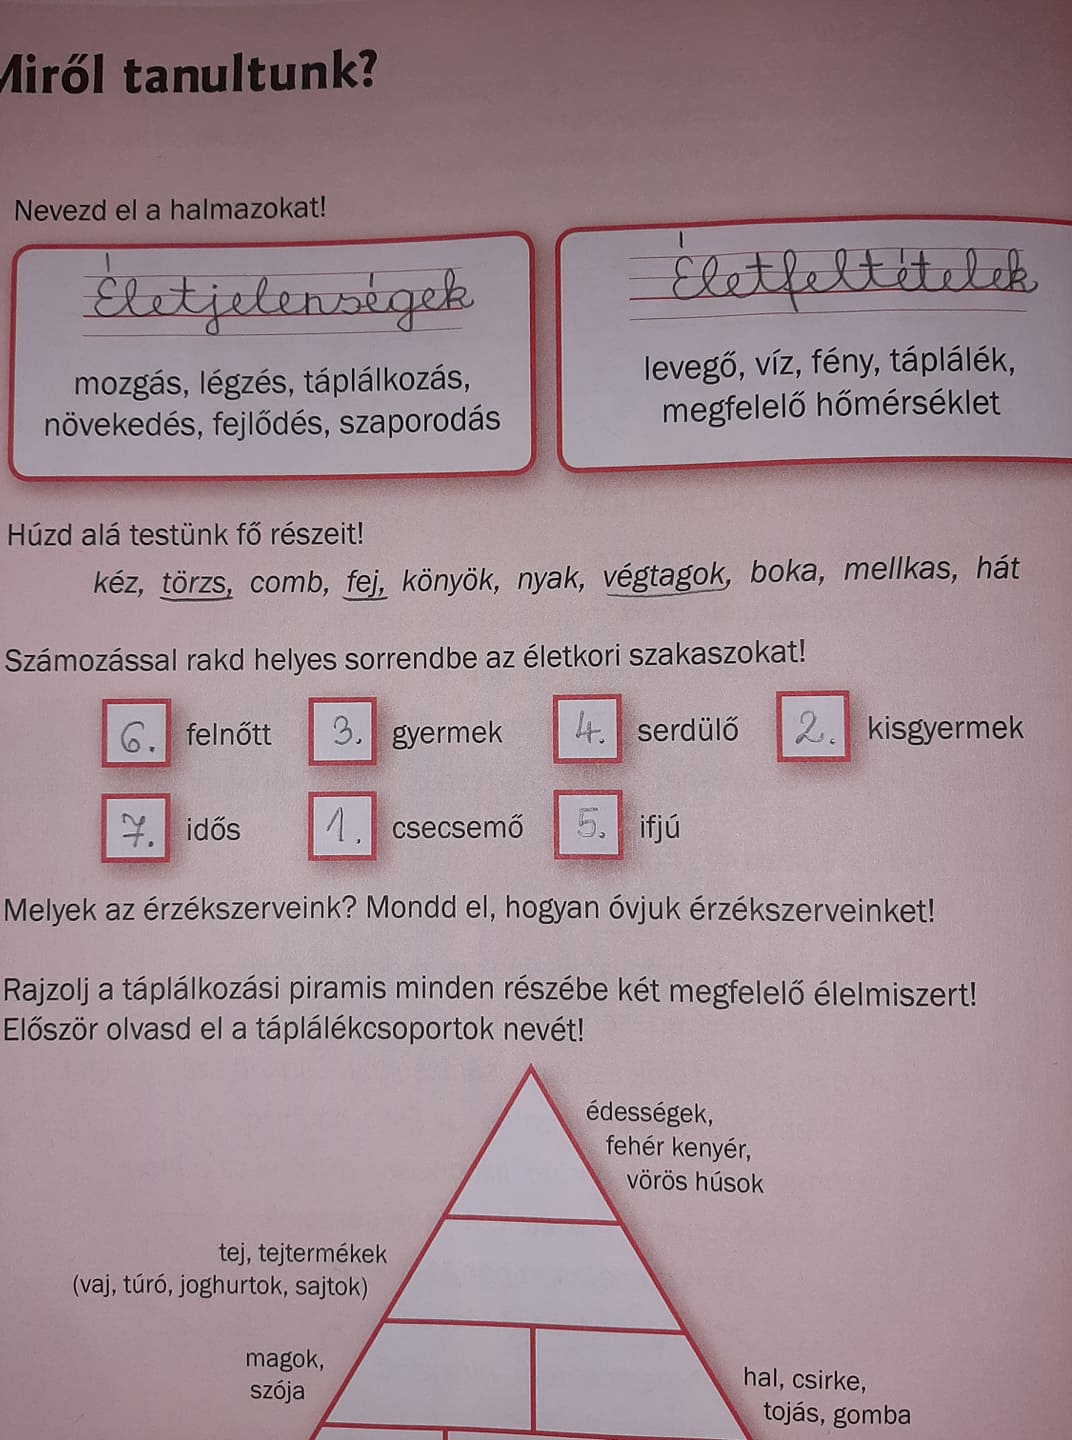 Miről tanultunk?
Nevezd el a halmazokat!
Életjelenségek
mozgás, légzés, táplálkozás,
növekedés, fejlődés, szaporodás
Életfeltételek
levegő, víz, fény, táplálék,
megfelelő hőmérséklet
Húzd alá testünk fő részeit!
kéz, törzs, comb, fej, könyök, nyak, végtagok, boka, mellkas, hát
Számozással rakd helyes sorrendbe az életkori szakaszokat!
6. felnőtt 3. gyermek 4. serdülő 2. kisgyermek
7. idős 1. csecsemő 5. ifjú
Melyek az érzékszerveink? Mondd el, hogyan óvjuk érzékszerveinket!
Rajzolj a táplálkozási piramis minden részébe két megfelelő élelmiszert!
Először olvasd el a táplálékcsoportok nevét!
édességek,
fehér kenyér,
vörös húsok
tej, tejtermékek
(vaj, túró, joghurtok, sajtok)
magok,
szója
hal, csirke,
tojás, gomba